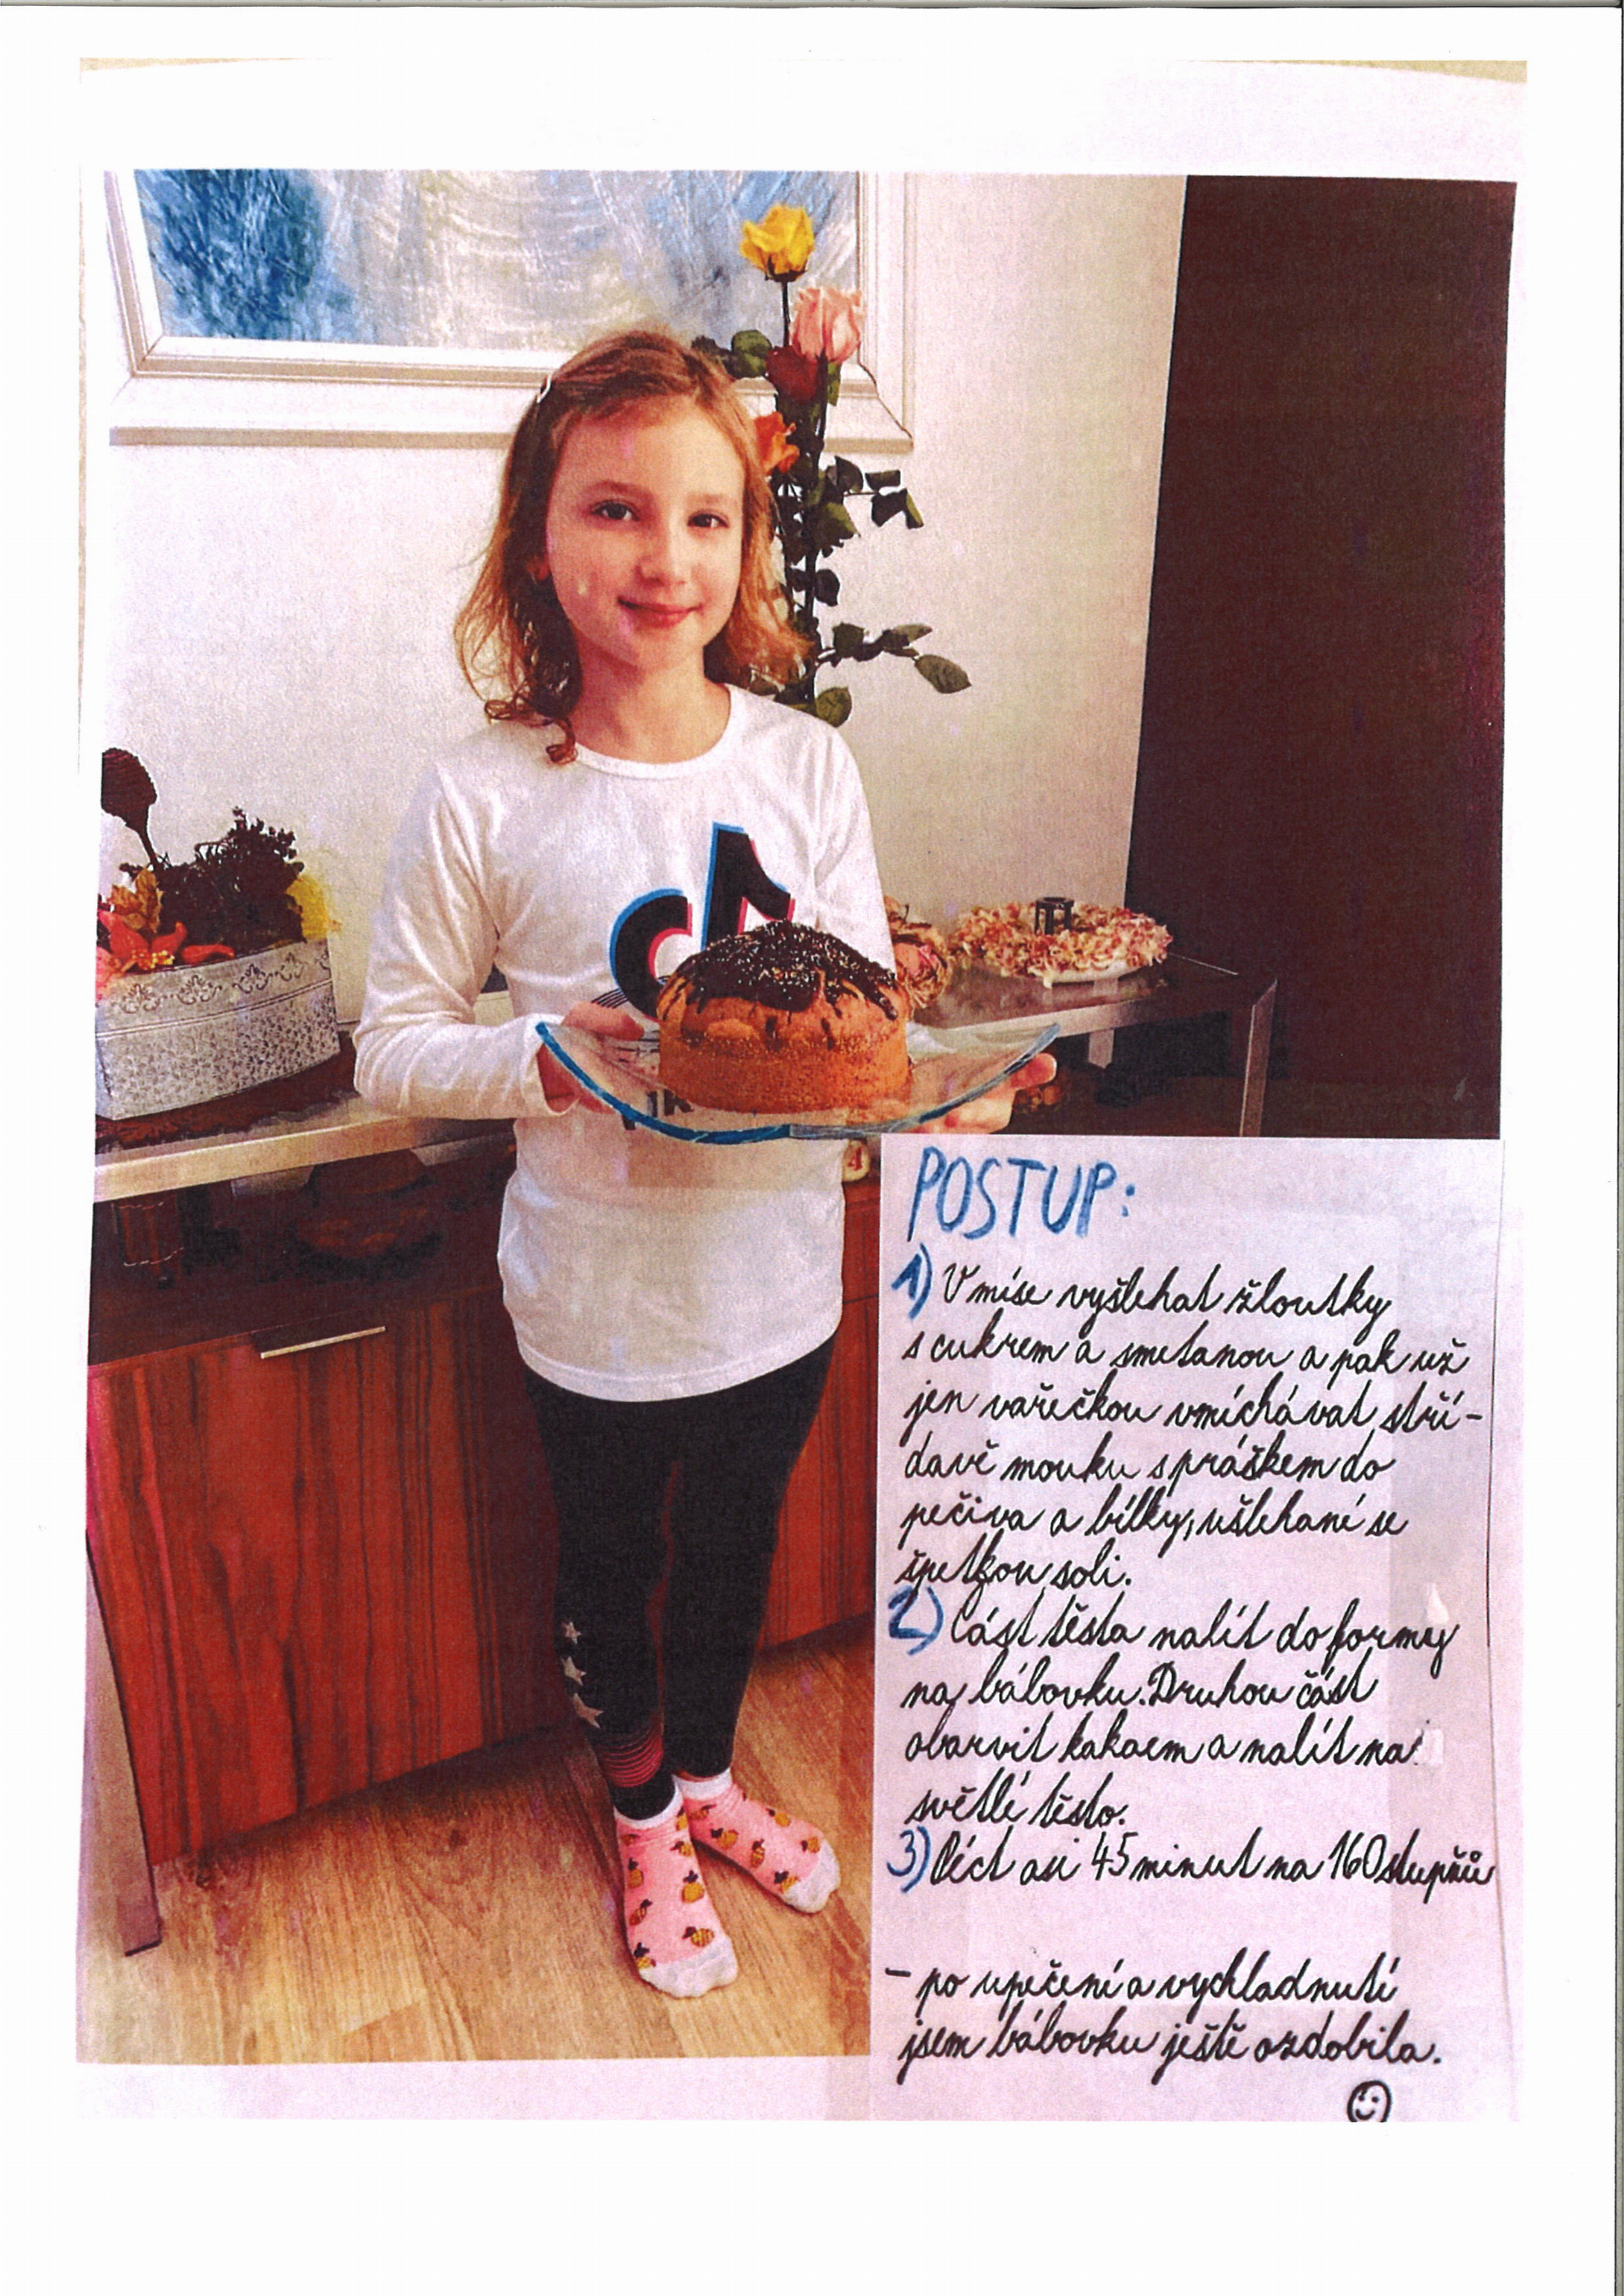 4
POSTUP:
1) V míse vyšlehat žloutky
s cukrem a smetanou a pak už
jen vařečkou vmíchávat stří-
davě mouku s práškem do
pečiva a bílky, ušlehané se
špetkou soli.
2) Část těsta nalít do formy
na bábovku. Druhou část
obarvit kakaem a nalít na
světlé těsto.
3) Péct asi 45 minut na 160 stupňů
- po upečení a vychladnutí
jsem bábovku ještě ozdobila.